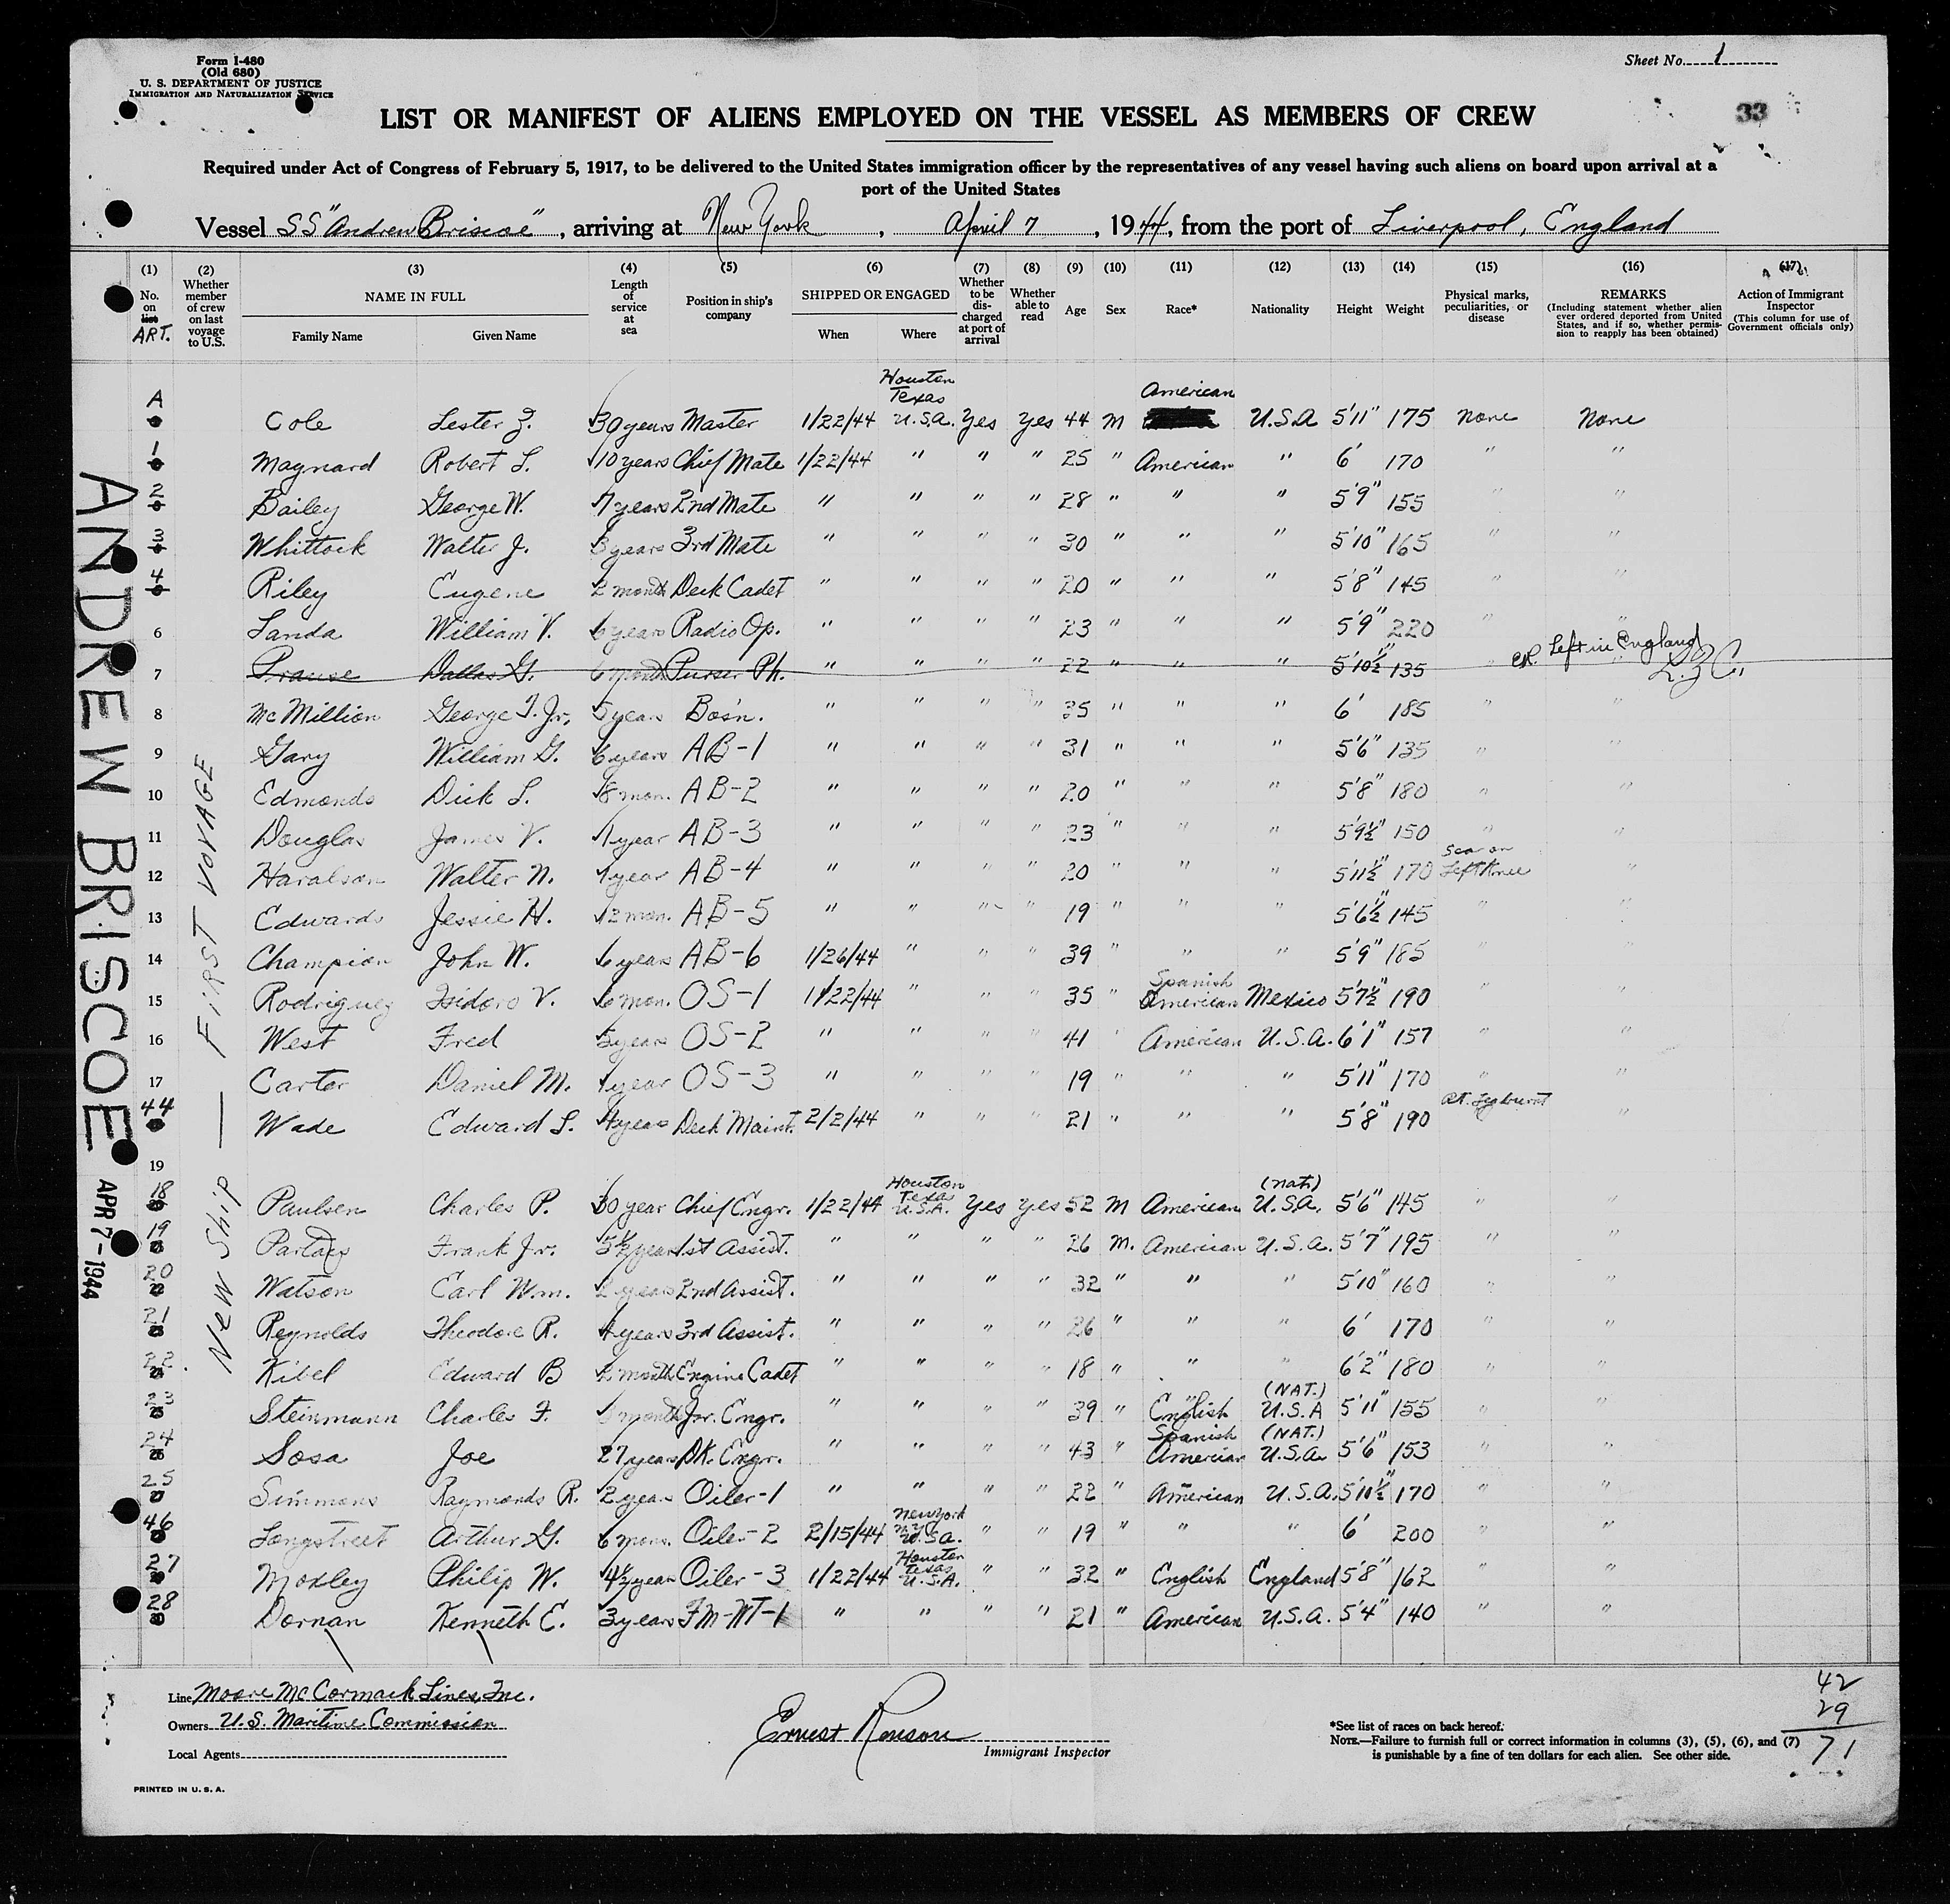 Form I-480
(Old 680)
U. S. DEPARTMENT OF JUSTICE
IMMIGRATION AND NATURALIZATION SERVICE
Sheet No. 1
33
LIST OR MANIFEST OF ALIENS EMPLOYED ON THE VESSEL AS MEMBERS OF CREW
Required under Act of Congress of February 5, 1917, to be delivered to the United States immigration officer by the representatives of any vessel having such aliens on board upon arrival at a
port of the United States
Vessel SS "Andrew Briscoe", arriving at New York, April 7, 1944, from the port of Liverpool, England
(1) No. on list ART.
(2) Whether member of crew on last voyage to U.S.
(3) NAME IN FULL Family Name Given Name
(4) Length of service at sea
(5) Position in ship's company
(6) SHIPPED OR ENGAGED When Where
(7) Whether to be discharged at port of arrival
(8) Whether able to read
(9) Age
(10) Sex
(11) Race*
(12) Nationality
(13) Height
(14) Weight
(15) Physical marks, peculiarities, or disease
(16) REMARKS (Including statement whether alien ever ordered deported from United States, and if so, whether permission to reapply has been obtained)
(17) Action of Immigrant Inspector (This column for use of Government officials only)
ANDREW BRISCOE APR 7-1944
New Ship — First Voyage
A Cole Lester Z. 30 years Master 1/22/44 Houston Texas U.S.A. Yes Yes 44 M American U.S.A 5'11" 175 None None
1 Maynard Robert L. 10 years Chief Mate 1/22/44 " " " 25 " American " 6' 170 " "
2 Bailey George W. 7 years 2nd Mate " " " " 28 " " " 5'9" 155 " "
3 Whittock Walter J. 3 years 3rd Mate " " " " 30 " " " 5'10" 165 " "
4 Riley Eugene 2 month Deck Cadet " " " " 20 " " " 5'8" 145 " "
6 Landa William V. 6 years Radio Op. " " " " 23 " " " 5'9" 220 " "
7 Dallas G. 6 month Purser Ph. " " " " 22 " " " 5'10½" 135 " Left in England L.Z.C.
8 McMillion George T. Jr. 5 years Bos'n. " " " " 35 " " " 6' 185 " "
9 Gary William G. 6 years AB-1 " " " " 31 " " " 5'6" 135 " "
10 Edmonds Dick L. 8 mon. AB-2 " " " " 20 " " " 5'8" 180 " "
11 Douglas James V. 1 year AB-3 " " " " 23 " " " 5'9½" 150 " "
12 Haralson Walter N. 1 year AB-4 " " " " 20 " " " 5'11½" 170 Scar on Left Knee "
13 Edwards Jessie H. 12 mon. AB-5 " " " " 19 " " " 5'6½" 145 " "
14 Champion John W. 6 years AB-6 1/26/44 " " " 39 " " " 5'9" 185 " "
15 Rodriguez Isidoro V. 6 mon. OS-1 1/22/44 " " " 35 " Spanish American Mexico 5'7½" 190 " "
16 West Fred 5 years OS-2 " " " " 41 " American U.S.A. 6'1" 157 " "
17 Carter Daniel M. 1 year OS-3 " " " " 19 " " " 5'11" 170 " "
44 Wade Edward L. 4 years Deck Maint. 2/2/44 " " " 21 " " " 5'8" 190 Rt. Leg burnt "
19
18 Paulsen Charles P. 30 year Chief Engr. 1/22/44 Houston Texas U.S.A. Yes Yes 52 M American (nat.) U.S.A. 5'6" 145 " "
19 Frank Jr. 5½ year 1st Assist. " " " " 26 M. American U.S.A. 5'7" 195 " "
20 Watson Earl Wm. 2 years 2nd Assist. " " " " 32 " " " 5'10" 160 " "
21 Reynolds Theodore R. 4 years 3rd Assist. " " " " 26 " " " 6' 170 " "
22 Kibel Edward B 2 month Engine Cadet " " " " 18 " " " 6'2" 180 " "
23 Steinmann Charles F. month Jr. Engr. " " " " 39 " English (NAT.) U.S.A 5'11" 155 " "
24 Sosa Joe 27 years Dk. Engr. " " " " 43 " Spanish American (NAT.) U.S.A. 5'6" 153 " "
25 Simmons Raymonds R. 2 years Oiler-1 " " " " 22 " American U.S.A. 5'11½" 170 " "
46 Longstreet Arthur G. 6 mons. Oiler-2 2/15/44 New York N.Y. U.S.A. " " 19 " " " 6' 200 " "
27 Moxley Philip W. 4½ year Oiler-3 1/22/44 Houston Texas U.S.A. " " 32 " English England 5'8" 162 " "
28 Dornan Kenneth E. 3 years FM-WT-1 " " " " 21 " American U.S.A. 5'4" 140 " "
Line Moore McCormack Lines, Inc.
Owners U.S. Maritime Commission
Local Agents
Ernest Ronson
Immigrant Inspector
*See list of races on back hereof.
NOTE.—Failure to furnish full or correct information in columns (3), (5), (6), and (7)
is punishable by a fine of ten dollars for each alien. See other side.
42
29
71
PRINTED IN U. S. A.